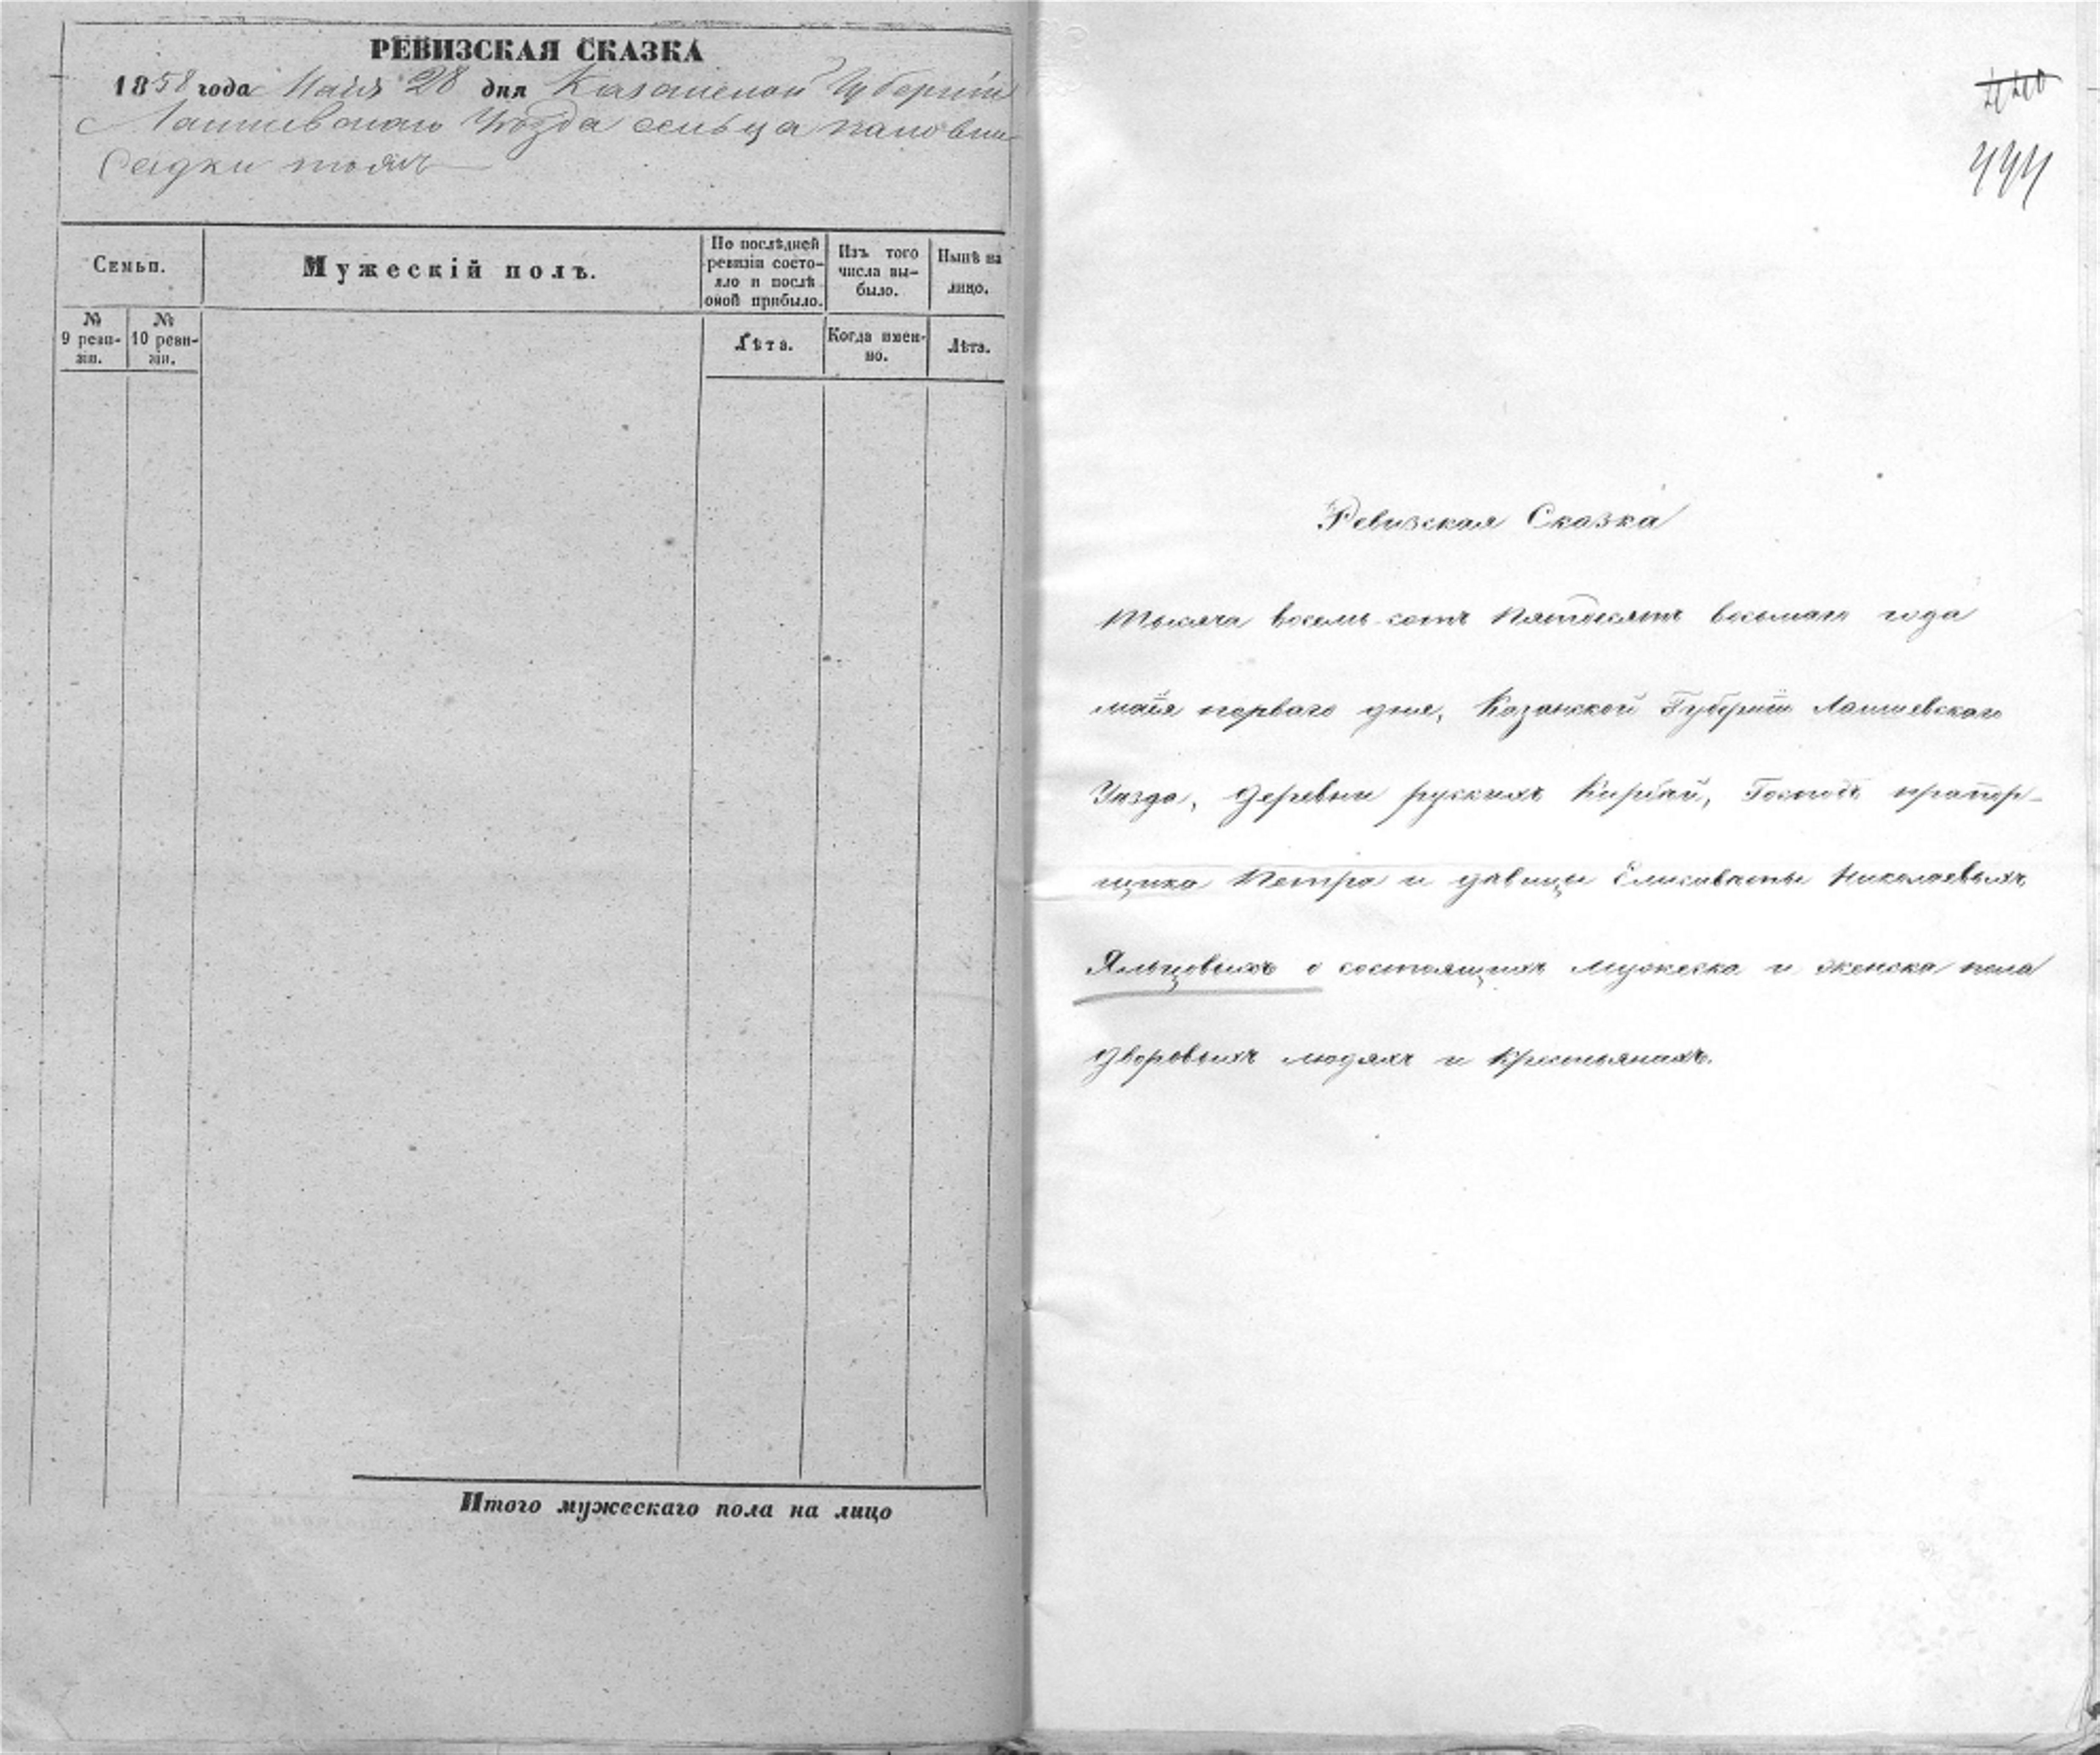 РЕВИЗСКАЯ СКАЗКА
1858 года Маія 28 дня Казанской Губерніи
Лаишевскаго Уѣзда сельца
тожъ
Семьи.
Мужескій полъ.
По послѣдней ревизіи состояло и послѣ оной прибыло.
Изъ того числа выбыло.
Нынѣ на лицо.
№ 9 ревизіи.
№ 10 ревизіи.
Лѣта.
Когда именно.
Лѣта.
Итого мужескаго пола на лицо
444
Ревизская Сказка
Тысяча восемь сотъ пятдесятъ восьмаго года
маія перваго дня, Казанской Губерніи Лаишевскаго
Уѣзда, деревни русскихъ Кирбей, Господъ прапор-
щика Петра и дѣвицы Елисаветы Николаевыхъ
Яльцовыхъ о состоящихъ мужеска и женска пола
дворовыхъ людяхъ и крестьянахъ.